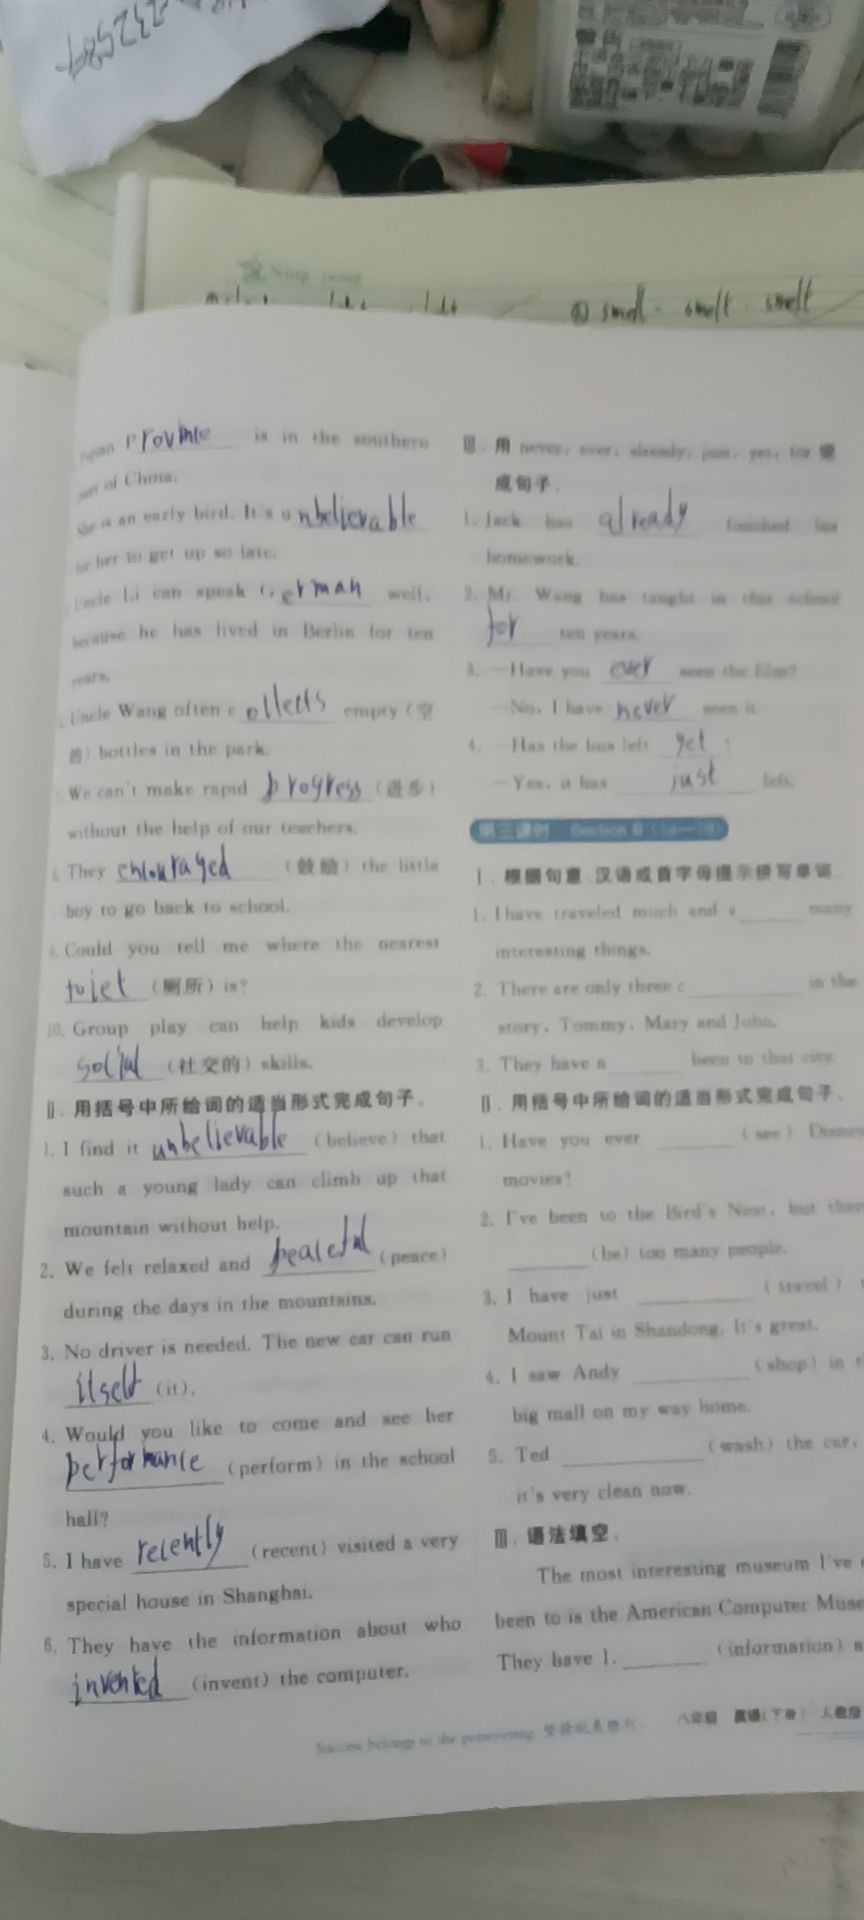 Ning
① smell - smelt - smelt
Fujian Province is in the southern
part of China.
She is an early bird. It's unbelievable
for her to get up so late.
Uncle Li can speak German well,
because he has lived in Berlin for ten
years.
Uncle Wang often collects empty (空
的) bottles in the park.
We can't make rapid progress (进步)
without the help of our teachers.
8. They encouraged (鼓励) the little
boy to go back to school.
9. Could you tell me where the nearest
toiet (厕所) is?
10. Group play can help kids develop
social (社交的) skills.
Ⅱ. 用括号中所给词的适当形式完成句子.
1. I find it unbelievable (believe) that
such a young lady can climb up that
mountain without help.
2. We felt relaxed and peaceful (peace)
during the days in the mountains.
3. No driver is needed. The new car can run
itself (it).
4. Would you like to come and see her
performance (perform) in the school
hall?
5. I have recently (recent) visited a very
special house in Shanghai.
6. They have the information about who
invented (invent) the computer.
Ⅲ. 用 never, ever, already, just, yet, for 完
成句子.
1. Jack has already finished his
homework.
2. Mr. Wang has taught in this school
for ten years.
3. —Have you ever seen the film?
—No, I have never seen it.
4. —Has the bus left yet ?
—Yes, it has just left.
第三课时 Section B
Ⅰ. 根据句意、汉语或首字母提示拼写单词.
1. I have traveled much and s______ many
interesting things.
2. There are only three c______ in the
story, Tommy, Mary and John.
3. They have n______ been to that city.
Ⅱ. 用括号中所给词的适当形式完成句子.
1. Have you ever ______ (see) Disney
movies?
2. I've been to the Bird's Nest, but
______ (be) too many people.
3. I have just ______ (travel)
Mount Tai in Shandong. It's great.
4. I saw Andy ______ (shop) in
big mall on my way home.
5. Ted ______ (wash) the car,
it's very clean now.
Ⅲ. 语法填空.
The most interesting museum I've
been to is the American Computer
They have 1. ______ (information)
Success belongs to the persevering. 坚持就是胜利
八年级 英语(下册) 人教版